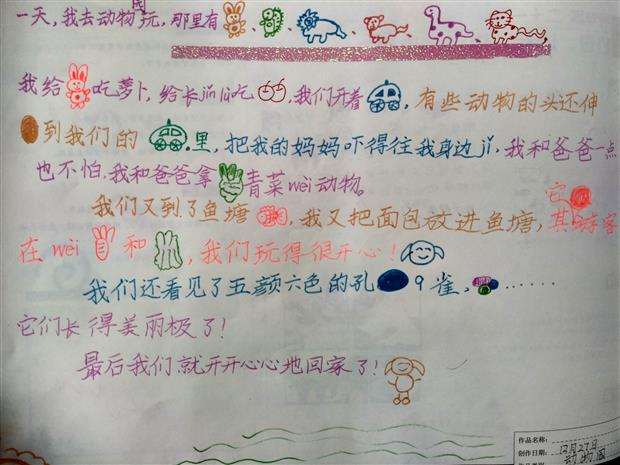 一天,我去动物园玩,那里有、、、、、
我给吃萝卜,给长jǐn lù吃,我们开着,有些动物的头还伸
到我们的里,把我的妈妈吓得往我身边jǐ,我和爸爸一点
也不怕。我和爸爸拿青菜wèi动物。
我们又到了鱼塘,我又把面包放进鱼塘,它
其游客
在wèi和,我们玩得很开心!
我们还看见了五颜六色的孔雀,......
它们长得美丽极了!
最后我们就开开心心地回家了!
作品名称:
创作日期:12月27日
动物园